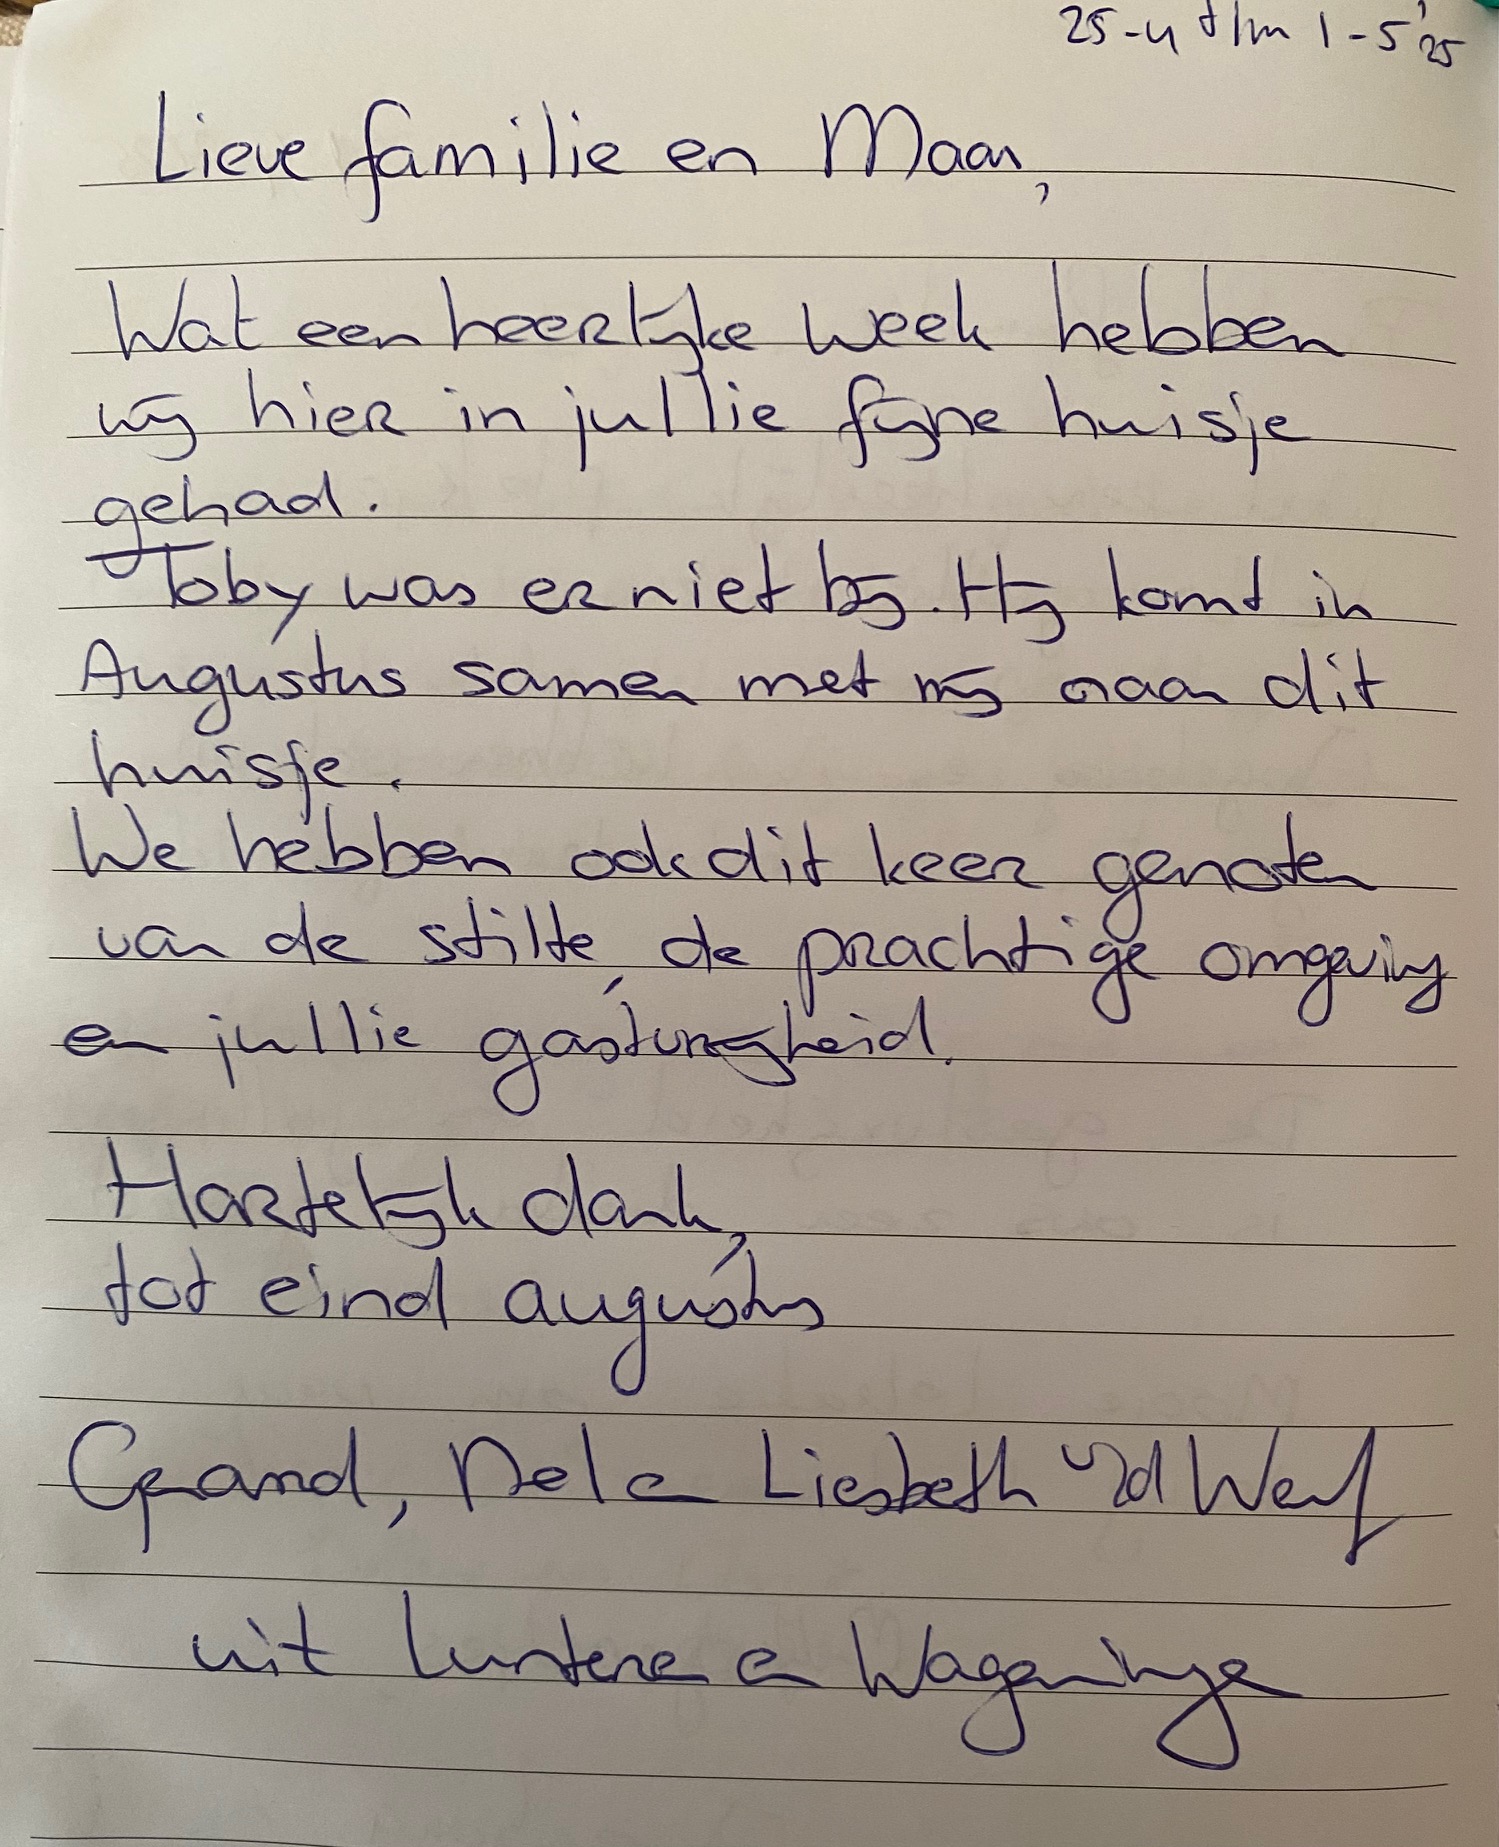 25-4 t/m 1-5 '25
Lieve familie en Maan,
Wat een heerlijke week hebben
wij hier in jullie fijne huisje
gehad.
Toby was er niet bij. Hij komt in
Augustus samen met mij naar dit
huisje.
We hebben ook dit keer genoten
van de stilte, de prachtige omgeving
en jullie gastvrijheid.
Hartelijk dank,
tot eind augustus
Gerand, Nel en Liesbeth vd Werf
uit Lunteren en Wageningen